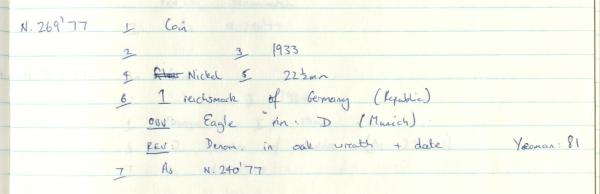 N. 269'77 1 Coin
2 3 1933
4 Nickel 5 22½mm
6 1 reichsmark of Germany (Republic)
OBV Eagle mm. D (Munich)
REV: Denom. in oak wreath + date Yeoman: 81
7 As N. 240'77